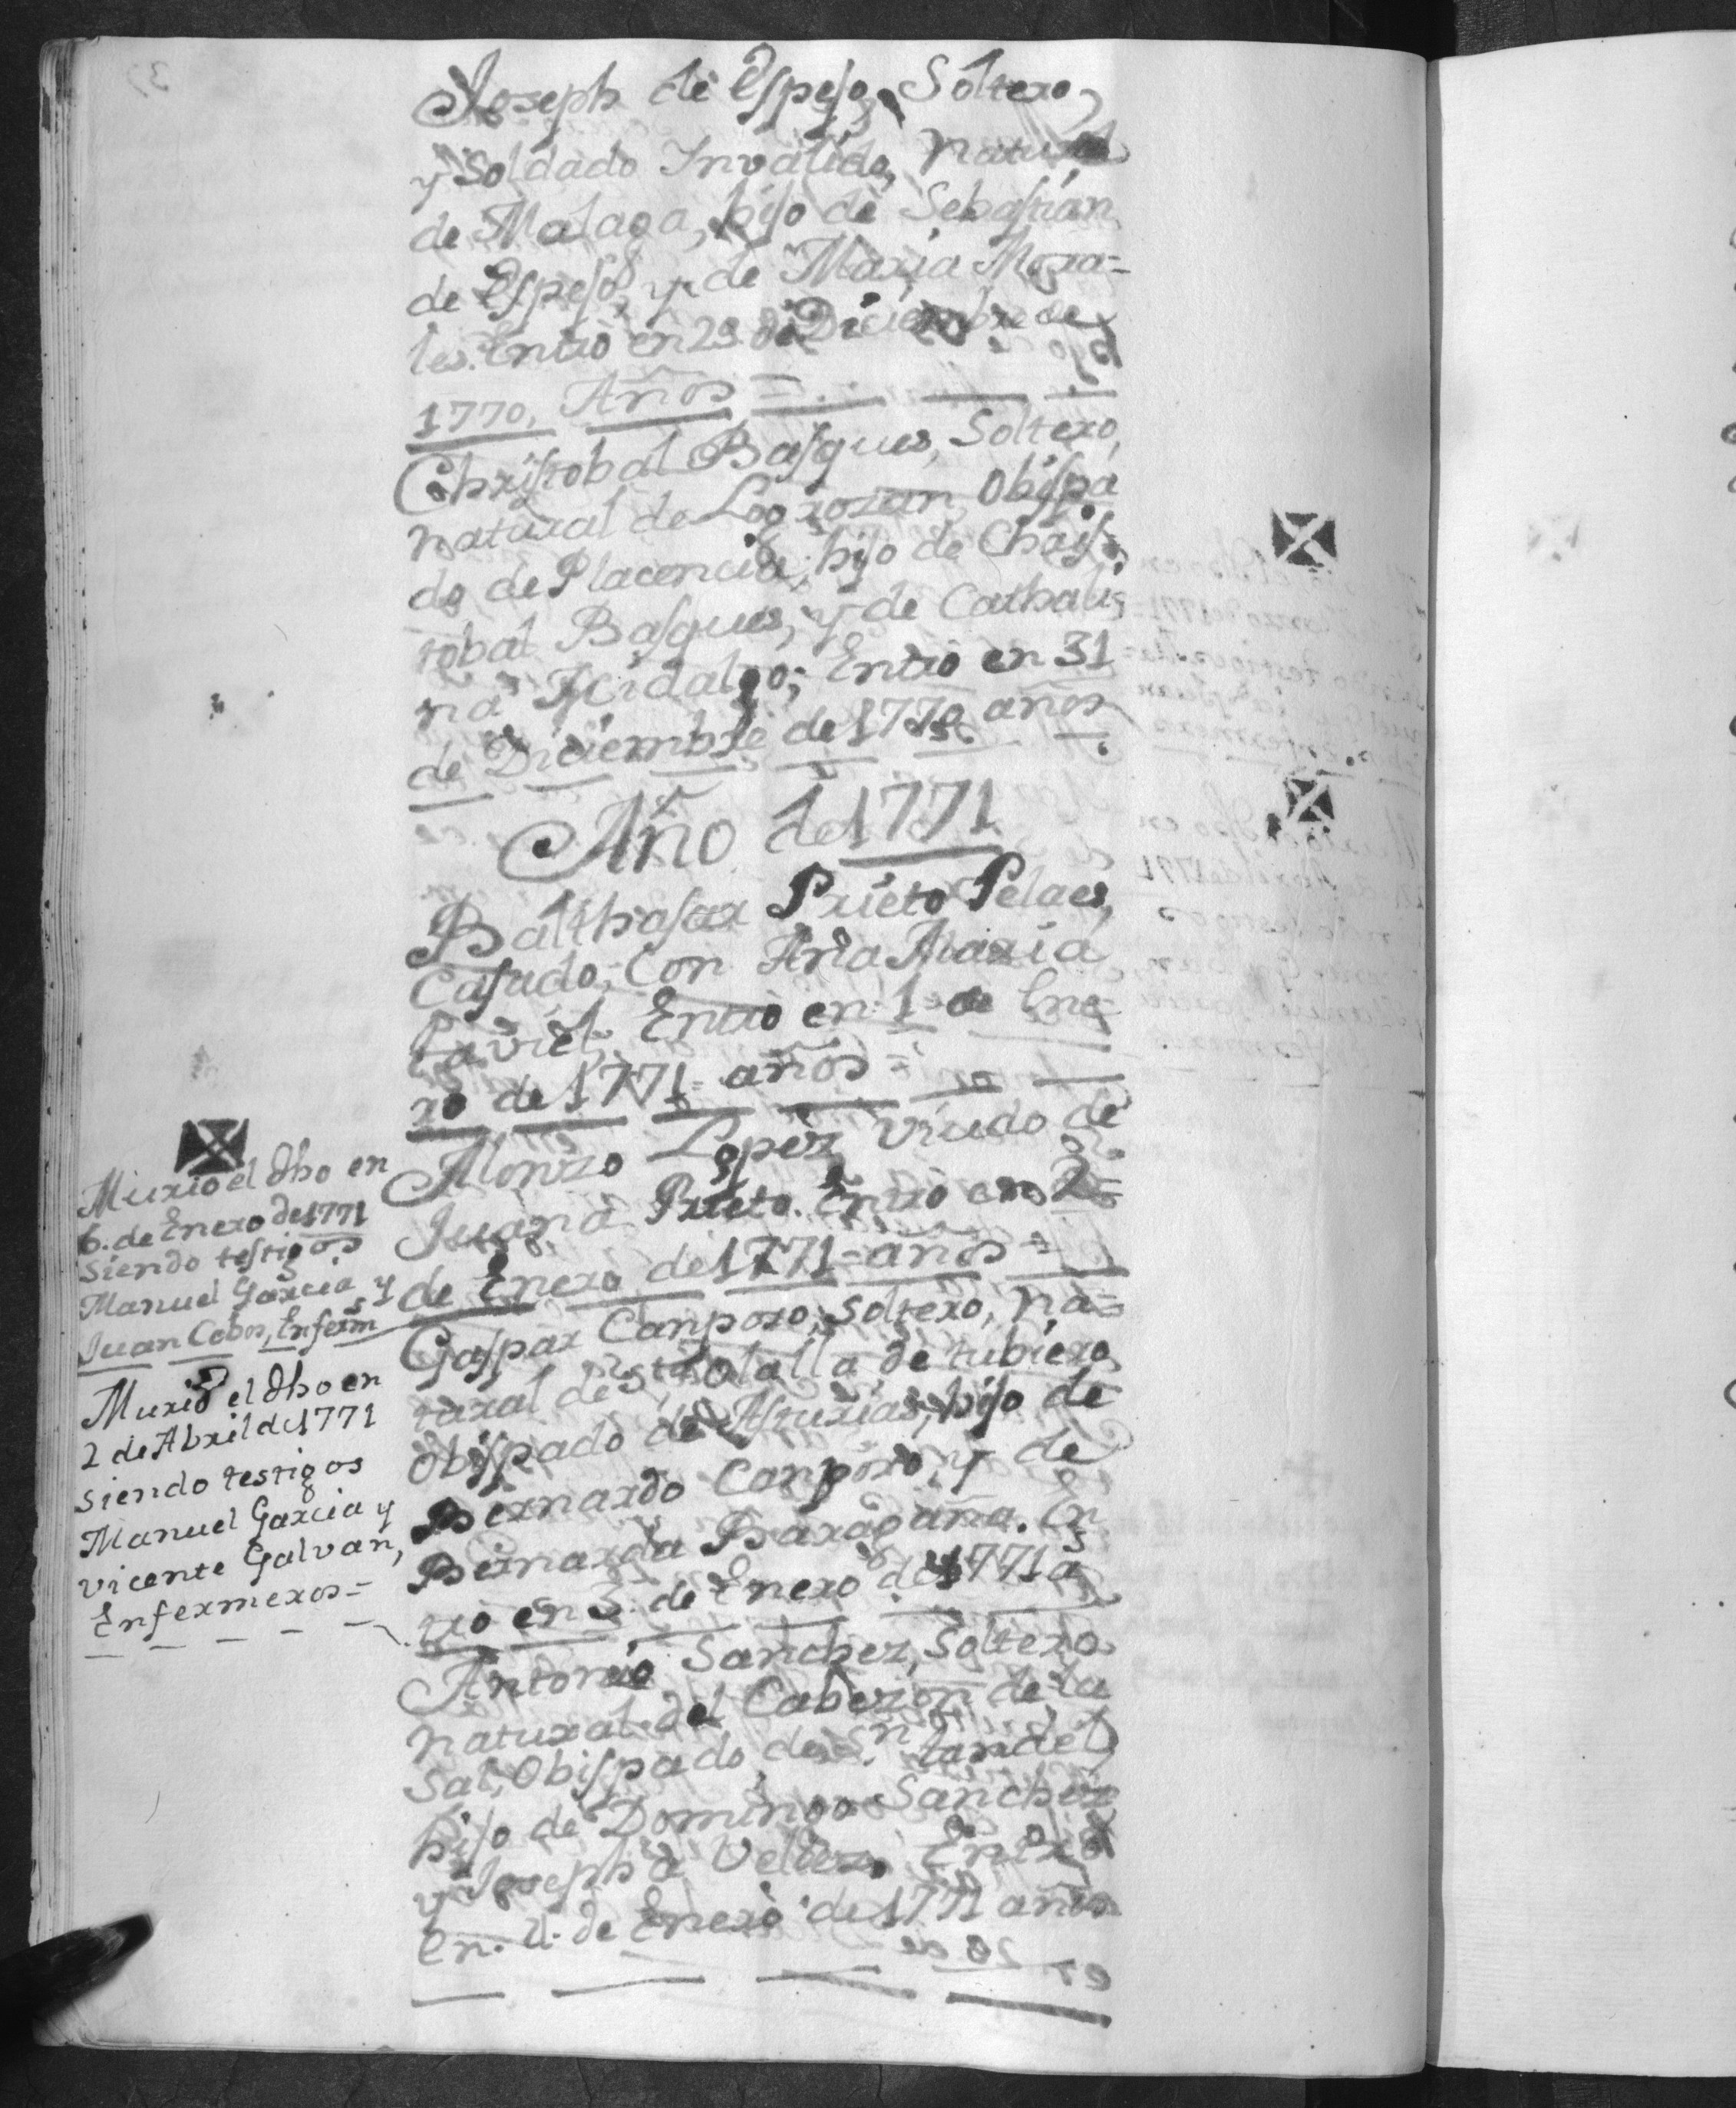 Joseph de Espejo, Soltero,
y Soldado Invalido, natural
de Malaga, hijo de Sebastian
de Espejo, y de Maria Mora=
les. Entro en 29 de Diciembre de
1770, Años =
Christobal Basques, Soltero,
natural de Logrozan, Obispa
do de Placencia, hijo de Chris=
tobal Basques, y de Cathali=
na Hidalgo; Entro en 31
de Diciembre de 1770 años
Año de 1771
Balthasar Prieto Pelaes,
Casado, Con Ana Maria
Entro en 1 de Ene=
ro de 1771 = años =
Alonzo Lopez Viudo de
Juana Prieto. Entro en 2=
de Enero de 1771 = años =
Gaspar Canporo, soltero, na=
tural de Sta. Olalla de tubiero
Obispado de Asturias, hijo de
Bernardo Canporo, y de
Bernarda Baragaña. En
tro en 3. de Enero de 1771 as
Antonio Sanchez, Soltero
natural del Cabezon de la
Sal, Obispado de Sn. tandel
hijo de Domingo Sanchez
y Josepha Velez, Entro
en. 4. de Enero de 1771 años
Murio el dho en
6. de Enero de 1771
siendo testigos
Manuel Garcia y
Juan Cobos, Enferms
Murió el dho en
2 de Abril de 1771
siendo testigos
Manuel Garcia y
vicente Galvan,
Enfermeros =